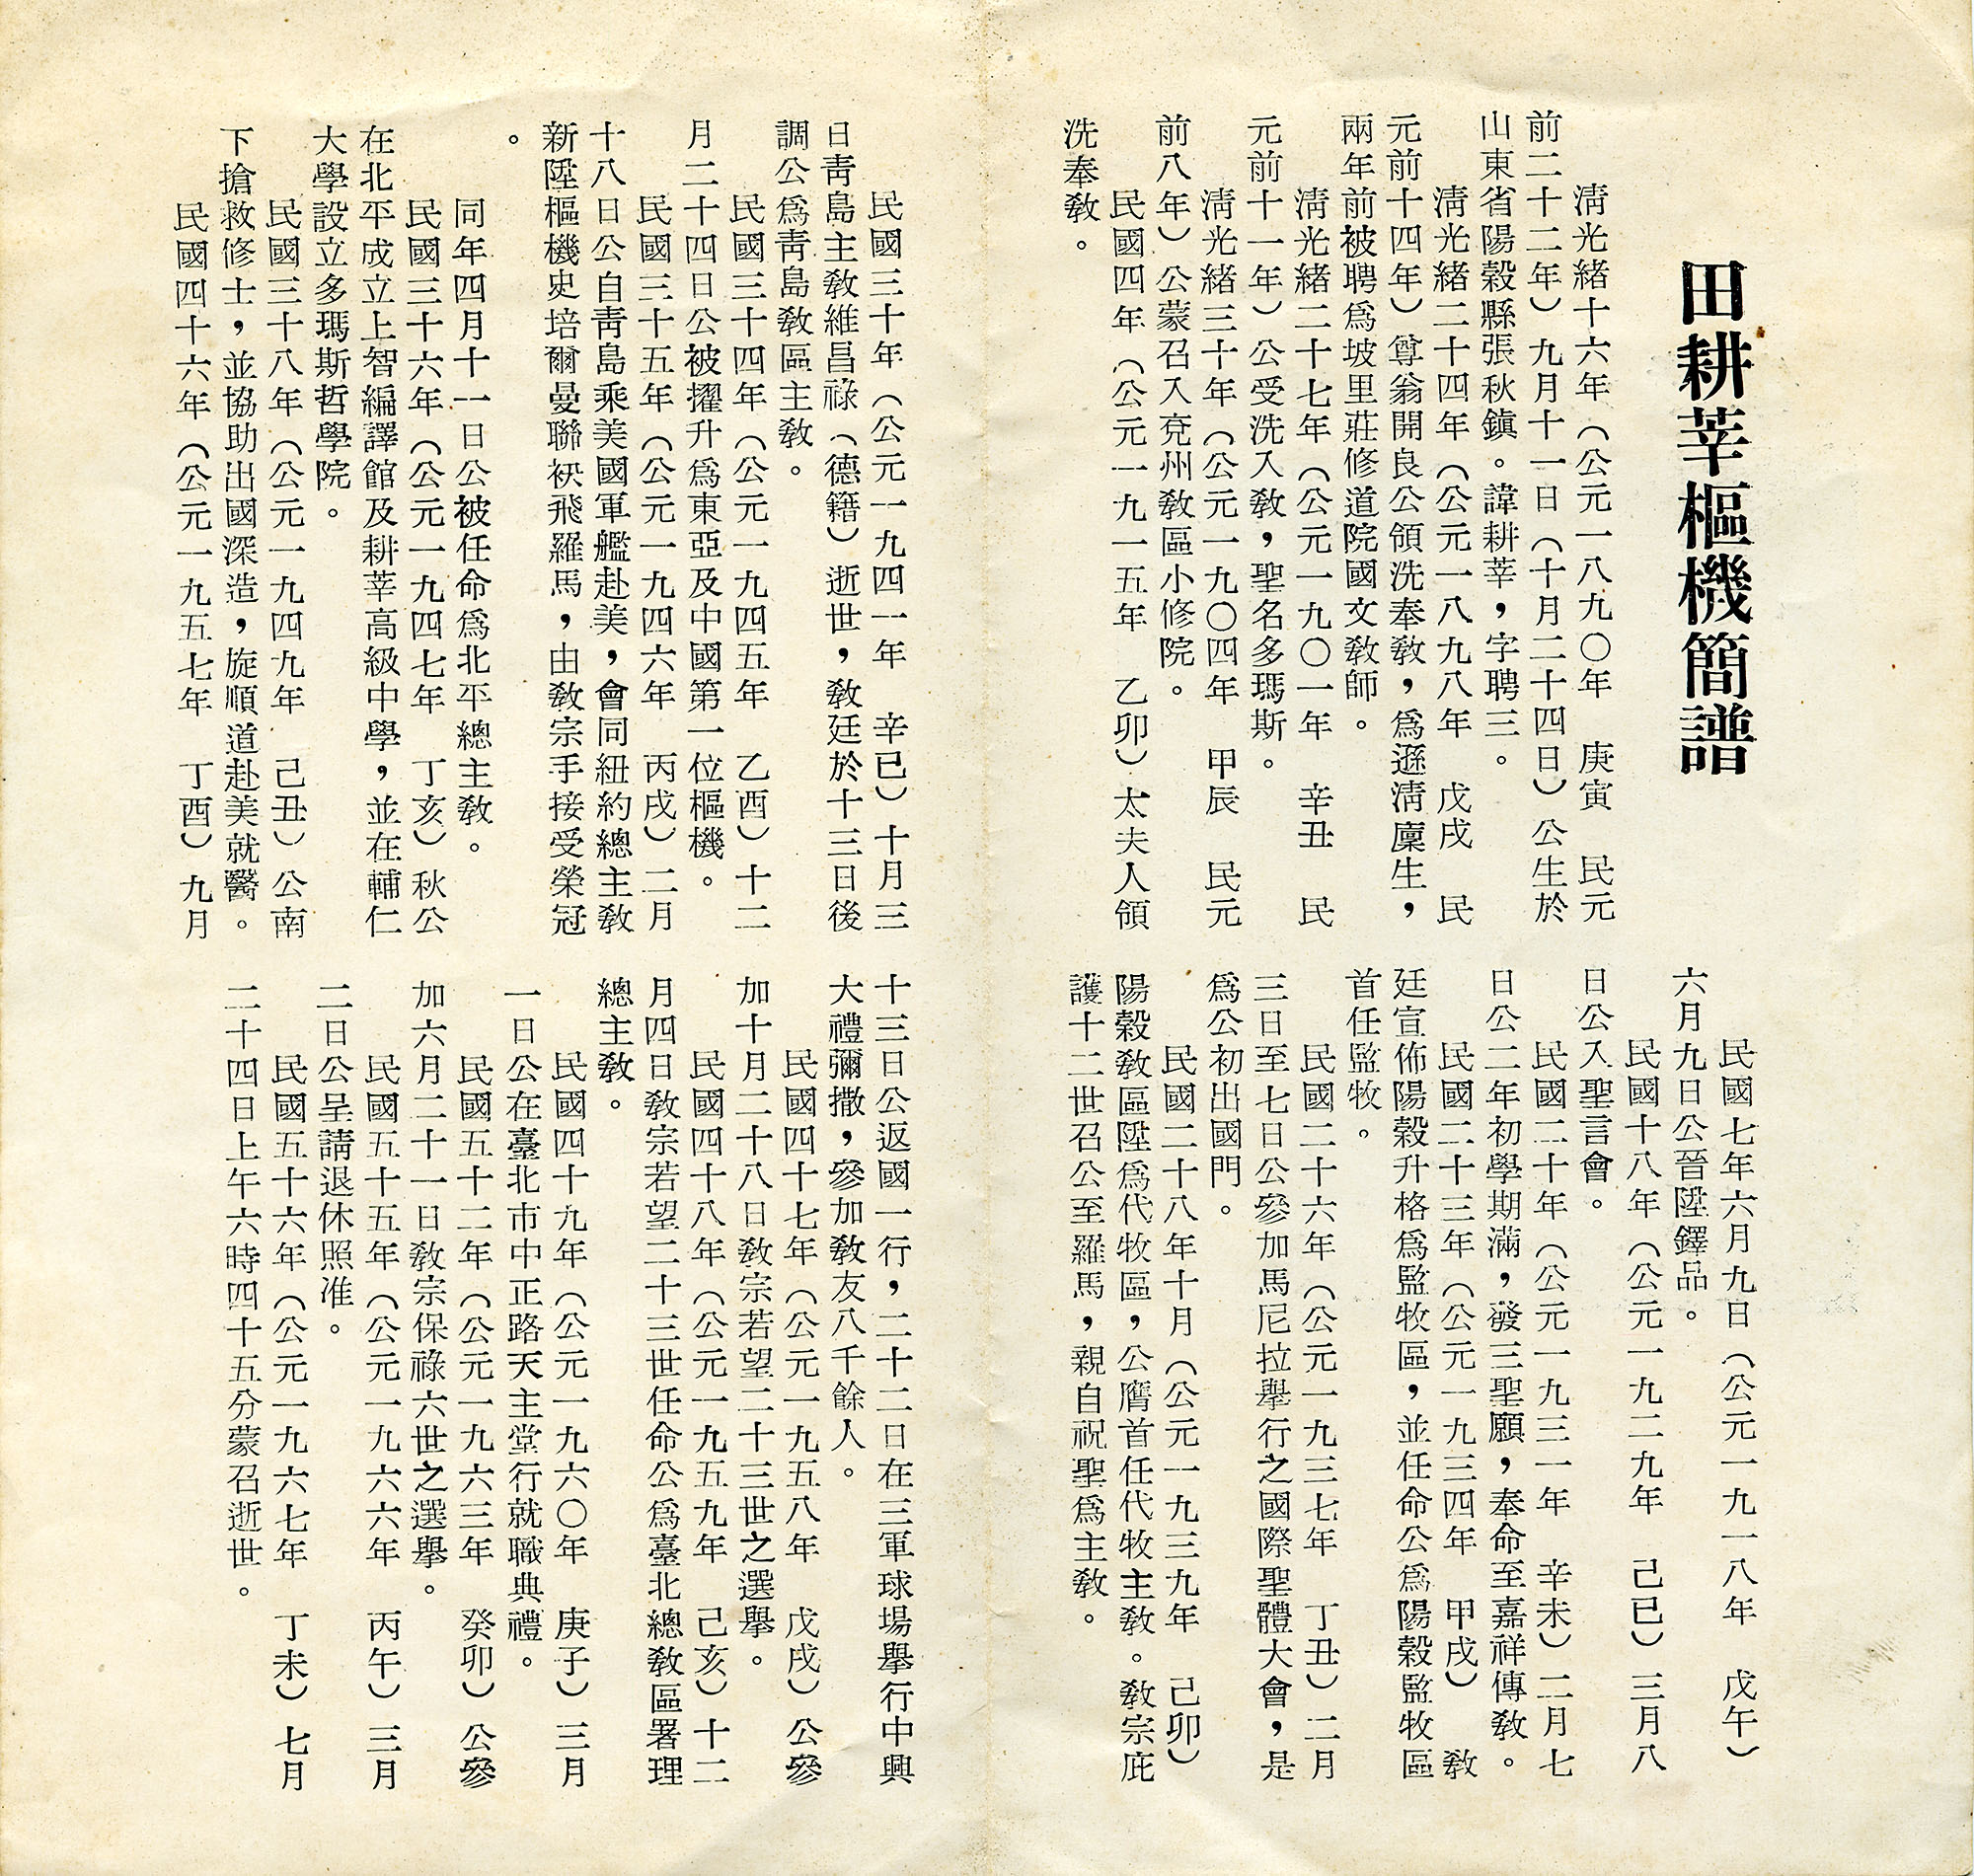 田耕莘樞機簡譜
淸光緒十六年（公元一八九〇年　庚寅　民元
前二十二年）九月十一日（十月二十四日）公生於
山東省陽穀縣張秋鎭。諱耕莘，字聘三。
淸光緒二十四年（公元一八九八年　戊戌　民
元前十四年）尊翁開良公領洗奉敎，爲遜淸廩生，
兩年前被聘爲坡里莊修道院國文敎師。
淸光緒二十七年（公元一九〇一年　辛丑　民
元前十一年）公受洗入敎，聖名多瑪斯。
淸光緒三十年（公元一九〇四年　甲辰　民元
前八年）公蒙召入兗州敎區小修院。
民國四年（公元一九一五年　乙卯）太夫人領
洗奉敎。
民國七年六月九日（公元一九一八年　戊午）
六月九日公晉陞鐸品。
民國十八年（公元一九二九年　己巳）三月八
日公入聖言會。
民國二十年（公元一九三一年　辛未）二月七
日公二年初學期滿，發三聖願，奉命至嘉祥傳敎。
民國二十三年（公元一九三四年　甲戌）　敎
廷宣佈陽穀升格爲監牧區，並任命公爲陽穀監牧區
首任監牧。
民國二十六年（公元一九三七年　丁丑）二月
三日至七日公參加馬尼拉舉行之國際聖體大會，是
爲公初出國門。
民國二十八年十月（公元一九三九年　己卯）
陽穀敎區陞爲代牧區，公膺首任代牧主敎。敎宗庇
護十二世召公至羅馬，親自祝聖爲主敎。
民國三十年（公元一九四一年　辛巳）十月三
日靑島主敎維昌祿（德籍）逝世，敎廷於十三日後
調公爲靑島敎區主敎。
民國三十四年（公元一九四五年　乙酉）十二
月二十四日公被擢升爲東亞及中國第一位樞機。
民國三十五年（公元一九四六年　丙戌）二月
十八日公自靑島乘美國軍艦赴美，會同紐約總主敎
新陞樞機史培爾曼聯袂飛羅馬，由敎宗手接受榮冠
。
同年四月十一日公被任命爲北平總主敎。
民國三十六年（公元一九四七年　丁亥）秋公
在北平成立上智編譯館及耕莘高級中學，並在輔仁
大學設立多瑪斯哲學院。
民國三十八年（公元一九四九年　己丑）公南
下搶救修士，並協助出國深造，旋順道赴美就醫。
民國四十六年（公元一九五七年　丁酉）九月
十三日公返國一行，二十二日在三軍球場舉行中興
大禮彌撒，參加敎友八千餘人。
民國四十七年（公元一九五八年　戊戌）公參
加十月二十八日敎宗若望二十三世之選舉。
民國四十八年（公元一九五九年　己亥）十二
月四日敎宗若望二十三世任命公爲臺北總敎區署理
總主敎。
民國四十九年（公元一九六〇年　庚子）三月
一日公在臺北市中正路天主堂行就職典禮。
民國五十二年（公元一九六三年　癸卯）公參
加六月二十一日敎宗保祿六世之選舉。
民國五十五年（公元一九六六年　丙午）三月
二日公呈請退休照准。
民國五十六年（公元一九六七年　丁未）七月
二十四日上午六時四十五分蒙召逝世。